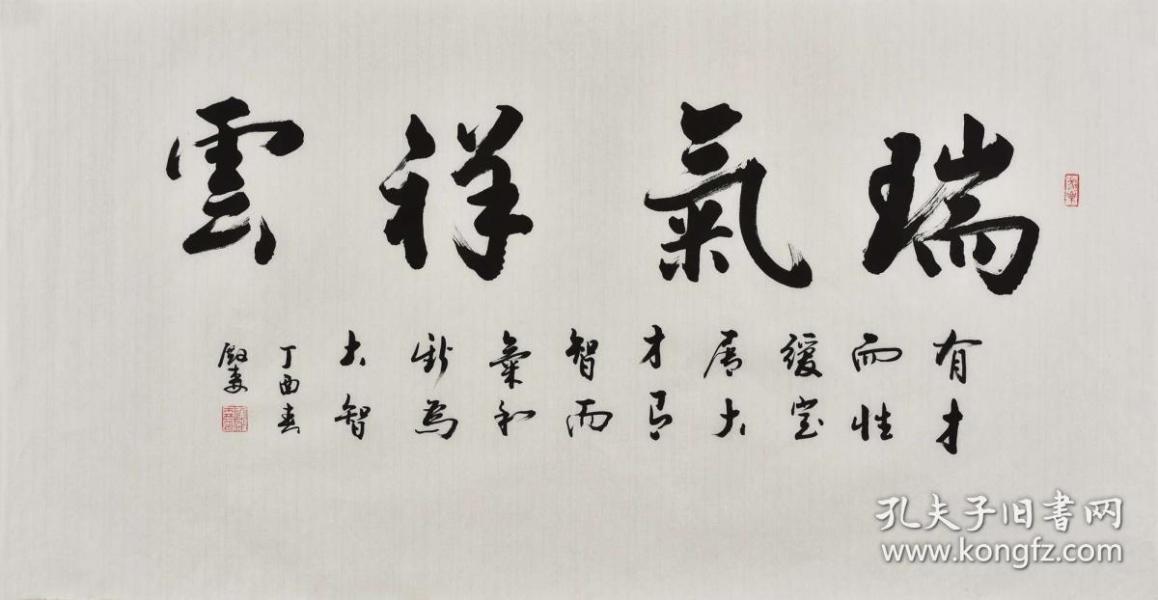 瑞氣祥雲
有才
而性
緩定
属大
才有
智而
氣和
斯為
大智
丁酉春
孔夫子旧書网
www.kongfz.com